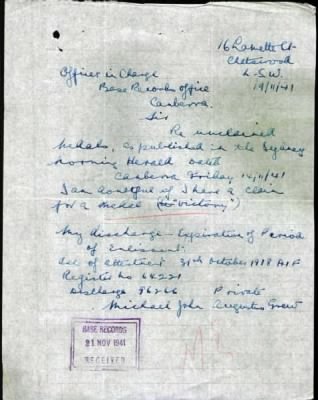 16 Lamette St
Chatswood
N.S.W.
19/11/41
Officer in Charge
Base Records Office
Canberra.
Sir
Re unclaimed
Medals, as published in the Sydney
Morning Herald dated
Canberra Friday 14/11/41
I am doubtful if I have a claim
for a medal ("Victory")
My discharge - Expiration of Period
of Enlistment.
of attestment 31st October 1918 A.I.F
Register No 64221
Discharge 86266 Private
Michael John Augustus
BASE RECORDS
21 NOV 1941
RECEIVED